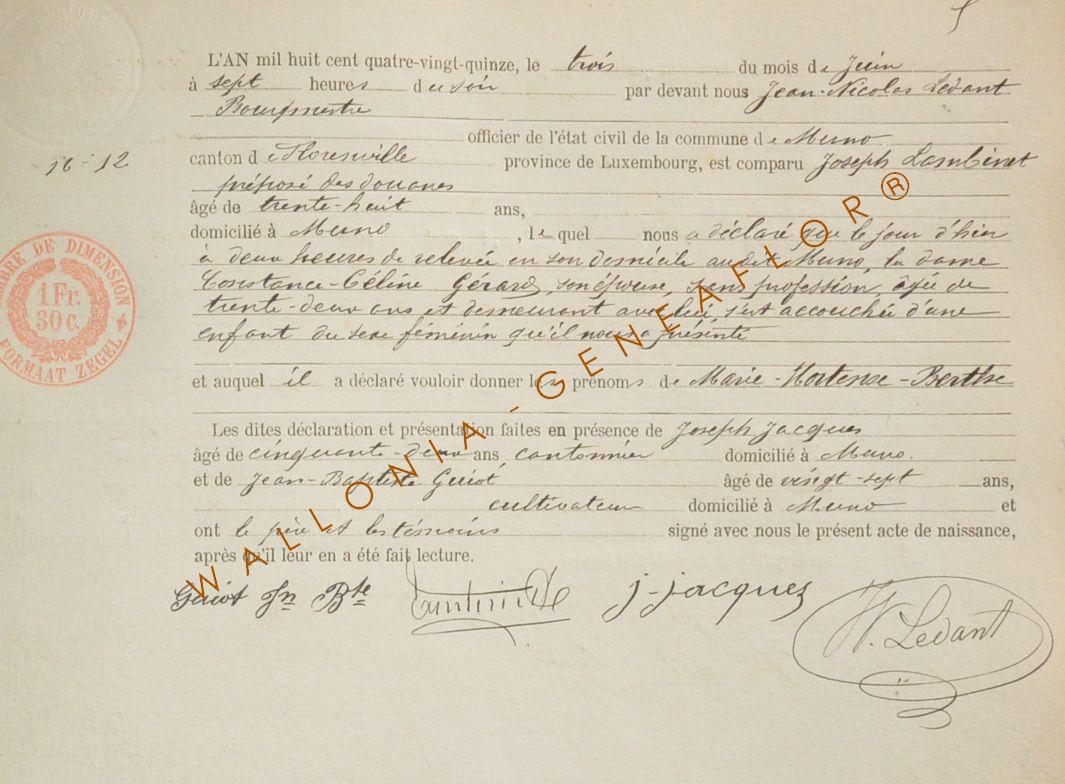 5
L'AN mil huit cent quatre-vingt-quinze, le trois du mois de Juin
à sept heures du soir par devant nous Jean-Nicolas Ledant
Bourgmestre
officier de l'état civil de la commune de Muno
16-12
canton de Florenville province de Luxembourg, est comparu Joseph Lambinet
préposé des douanes
âgé de trente-huit ans,
domicilié à Muno, lequel nous a déclaré que le jour d'hier
à deux heures de relevée en son domicile audit Muno, la dame
Constance-Céline Gérard, son épouse, sans profession, âgée de
trente-deux ans et demeurant avec lui, s'est accouchée d'une
enfant du sexe féminin qu'il nous a présenté
et auquel il a déclaré vouloir donner les prénoms de Marie-Hortense-Berthe
Les dites déclaration et présentation faites en présence de Joseph Jacques
âgé de cinquante-deux ans, cantonnier domicilié à Muno.
et de Jean-Baptiste Guiot âgé de vingt-sept ans,
cultivateur domicilié à Muno et
ont le père et les témoins signé avec nous le présent acte de naissance,
après qu'il leur en a été fait lecture.
Guiot Jn Bte
J. Jacques
N. Ledant
TIMBRE DE DIMENSION
1 Fr.
30 C.
FORMAAT ZEGEL
WALLONIA - GENEAFLOR ®